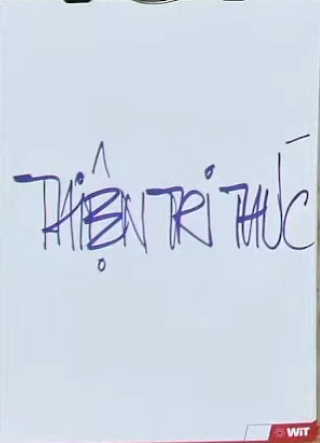 THIỆN TRI THỨC
WiT